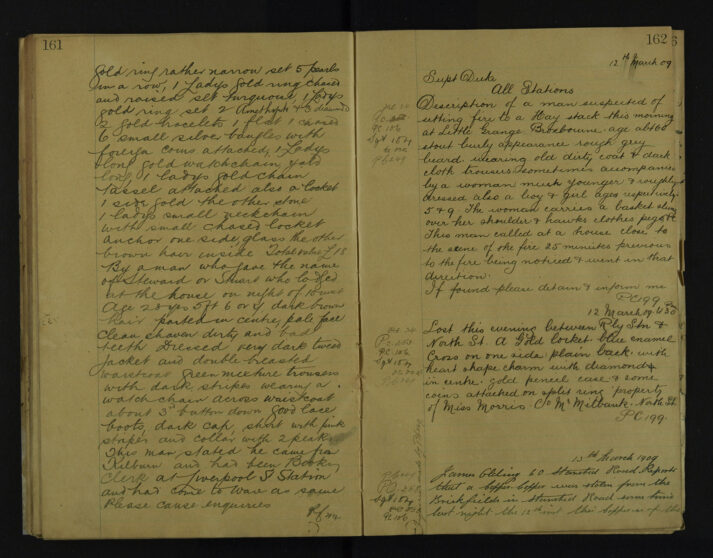 161
gold ring rather narrow set 5 pearls
in a row, 1 Ladys gold ring chased
and raised set turquoise 1 Ladys
gold ring set 2 Amethysts & 3 diamond
2 gold bracelets 1 flat 1 chased
6 small silver bangles with
foreign coins attached, 1 Ladys
long gold watchchain, gold
1 ladys gold chain
Tassel attached also a locket
1 side gold the other stone
1 ladys small neckchain
with small chased locket
anchor one side, glass the other
brown hair inside Total value £18
By a man who gave the name
of Steward or Stuart who lodged
at the house on night of
Age 28 yrs 5 ft 6 or 7 dark brown
hair parted in centre, pale face
Clean shaven dirty and bad
teeth Dressed very dark tweed
Jacket and double breasted
waistcoat green mixture trousers
with dark stripes wearing a
watch chain across waistcoat
about 3rd button down good lace
boots, dark cap, shirt with pink
stripes and collar with 2 peaks
This man stated he came from
Kilburn and had been Booking
Clerk at Liverpool St Station
and had come to Ware as same
Please cause enquiries
162
12th March 09
Supt Duke
All Stations
Description of a man suspected of
setting fire to a Hay stack this morning
at Little Grange Broxbourne. age abt 60
stout burly appearance rough grey
beard wearing old dirty coat & dark
cloth trousers sometimes accompanied
by a woman much younger & roughly
dressed also a boy & girl ages respectively
5 & 9 The woman carries a basket slung
over her shoulder & hawks clothes pegs &c
This man called at a house close to
the scene of the fire 25 minutes previous
to the fire being noticed & went in that
direction.
If found please detain & inform me
PC 199
12 March 09
Lost this evening between Rly Stn &
North St. A Gold locket blue enamel
Cross on one side plain back. with
heart shape charm with diamonds
in centre. gold pencil case & some
coins attached on split ring property
of Miss Morris Co Mr Milbank. North St
PC 199.
13th March 1909
James 60 Stansted Road Reports
that a copper was stolen from the
Brickfields in Stansted Road some time
last night the 12th inst this copper is of the